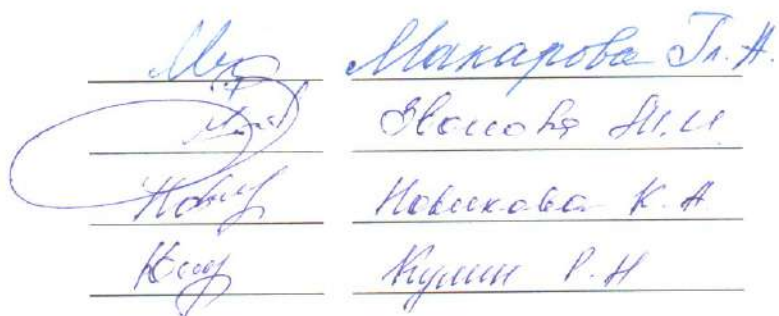 Макарова Гл. А.
Н.И
Новикова К. А
Кулин Р. Н